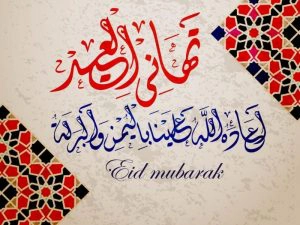 تهاني العيد
أعاده الله علينا باليمن والبركة
Eid mubarak